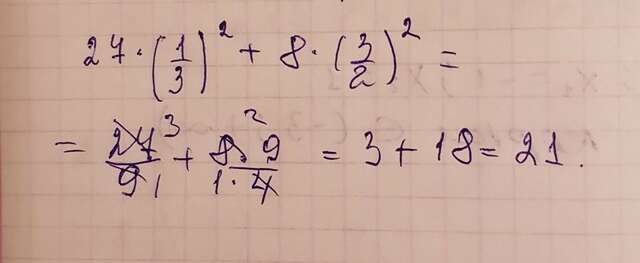 27 · (1/3)² + 8 · (3/2)² =
= 27³/9₁ + 8² · 9/1 · 4 = 3 + 18 = 21.